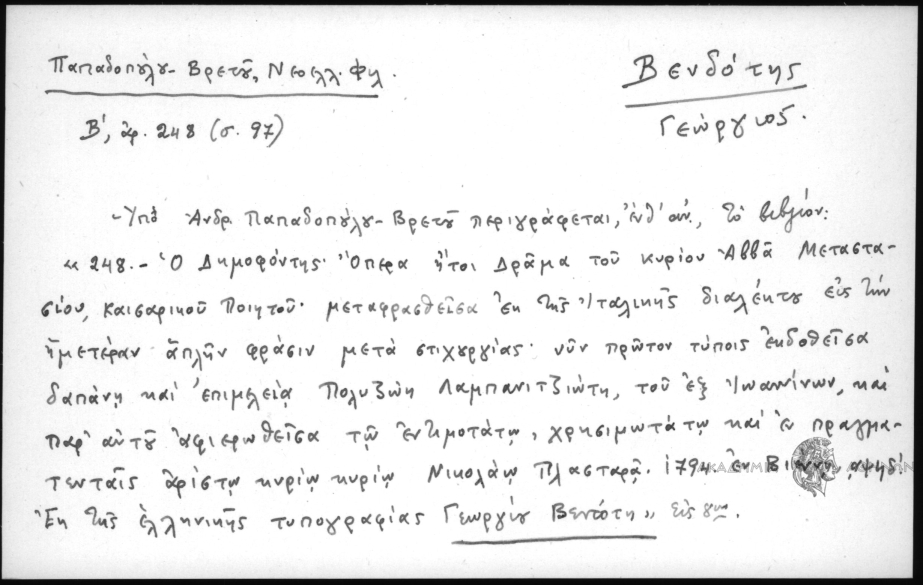 Παπαδοπούλου-Βρετοῦ, Νεοελλ. Φιλ.
Βενδότης
Β΄, ἀρ. 248 (σ. 97)
Γεώργιος.
-Ὑπὸ Ἀνδρ. Παπαδοπούλου-Βρετοῦ περιγράφεται, ἔνθ' ἀν., τὸ βιβλίον:
« 248.- Ὁ Δημοφόντης· Ὄπερα ἤτοι Δρᾶμα τοῦ κυρίου Ἀββᾶ Μεταστα-
σίου, Καισαρικοῦ Ποιητοῦ· μεταφρασθεῖσα ἐκ τῆς Ἰταλικῆς διαλέκτου εἰς τὴν
ἡμετέραν ἁπλῆν φράσιν μετὰ στιχουργίας· νῦν πρῶτον τύποις ἐκδοθεῖσα
δαπάνῃ καὶ ἐπιμελείᾳ Πολυζώη Λαμπανιτζιώτη, τοῦ ἐξ Ἰωαννίνων, καὶ
παρ' αὐτοῦ ἀφιερωθεῖσα τῷ ἐντιμοτάτῳ, χρησιμωτάτῳ καὶ ἐν πραγμα-
τευταῖς ἀρίστῳ κυρίῳ κυρίῳ Νικολάῳ Πλασταρᾷ. 1794 ἐν Βιέννῃ, αψϟδ΄
Ἐκ τῆς ἑλληνικῆς τυπογραφίας Γεωργίου Βεντότη», Εἰς 8ον.
ΑΚΑΔΗΜΙΑ ΑΘΗΝΩΝ